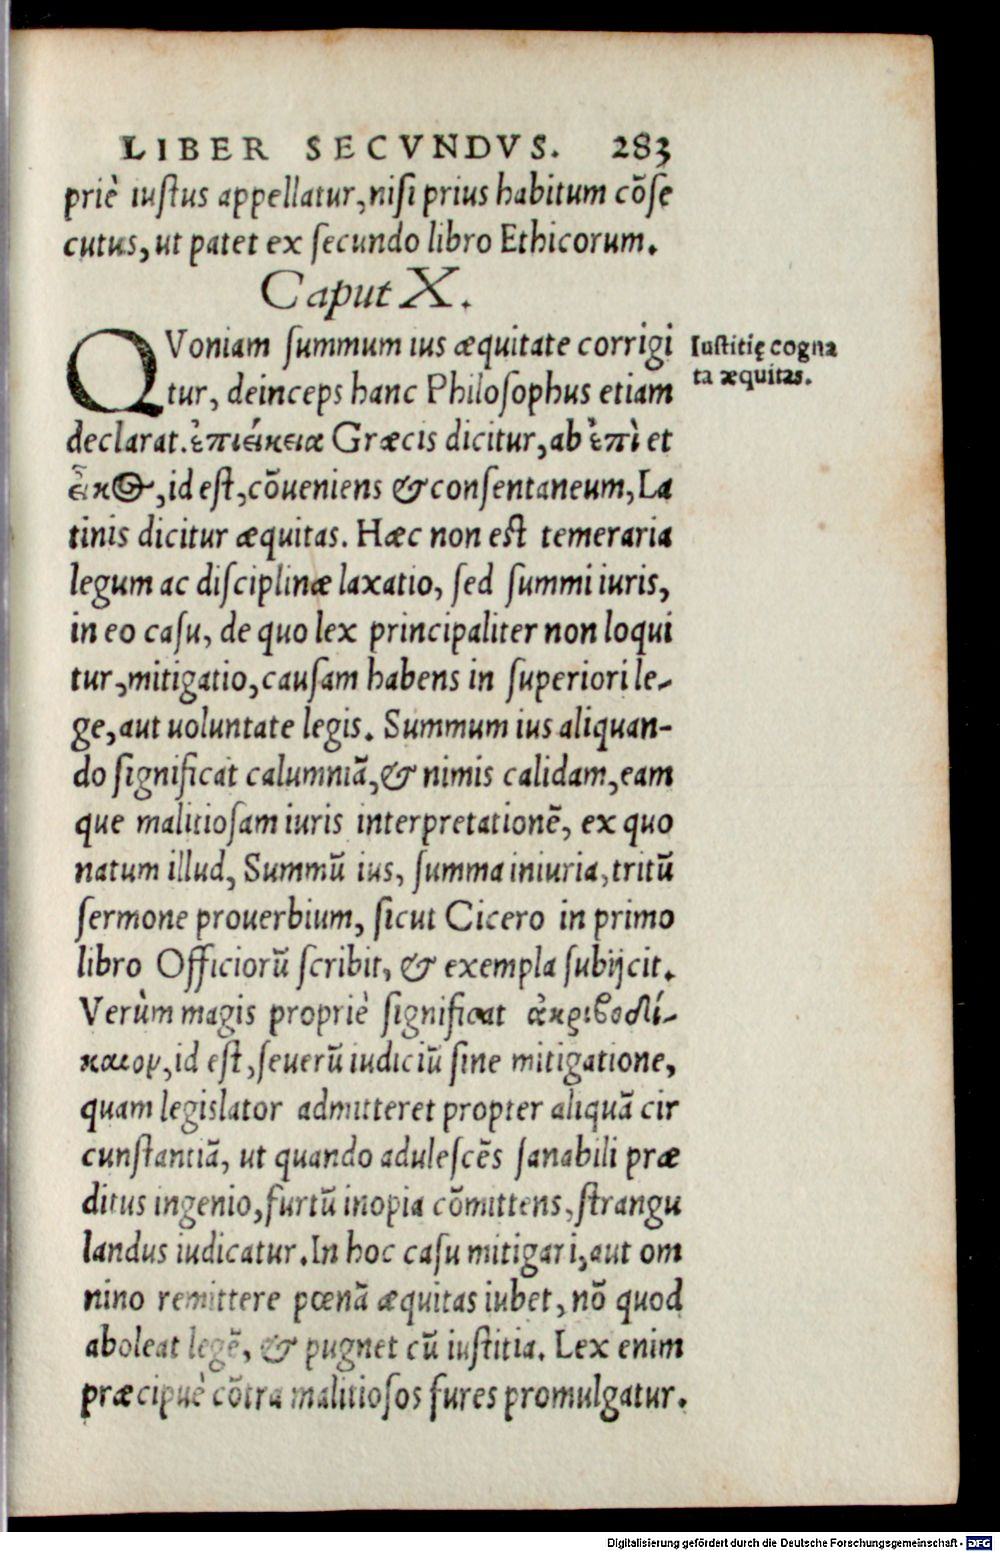 LIBER SECVNDVS. 283
priè iustus appellatur, nisi prius habitum cōse
cutus, ut patet ex secundo libro Ethicorum.
Caput X.
QVoniam summum ius æquitate corrigi
tur, deinceps hanc Philosophus etiam
declarat. ἐπιείκεια Græcis dicitur, ab ἐπὶ et
εἶκος, id est, cōueniens & consentaneum, La
tinis dicitur æquitas. Hæc non est temeraria
legum ac disciplinæ laxatio, sed summi iuris,
in eo casu, de quo lex principaliter non loqui
tur, mitigatio, causam habens in superiori le-
ge, aut uoluntate legis. Summum ius aliquan-
do significat calumniā, & nimis calidam, eam
que malitiosam iuris interpretationē, ex quo
natum illud, Summū ius, summa iniuria, tritū
sermone prouerbium, sicut Cicero in primo
libro Officiorū scribit, & exempla subijcit.
Verùm magis propriè significat ἀκριβοδί-
καιον, id est, seuerū iudiciū sine mitigatione,
quam legislator admitteret propter aliquā cir
cunstantiā, ut quando adulescēs sanabili præ
ditus ingenio, furtū inopia cōmittens, strangu
landus iudicatur. In hoc casu mitigari, aut om
nino remittere pœnā æquitas iubet, nō quod
aboleat legē, & pugnet cū iustitia. Lex enim
præcipuè cōtra malitiosos fures promulgatur.
Iustitię cogna
ta æquitas.
Digitalisierung gefördert durch die Deutsche Forschungsgemeinschaft - DFG